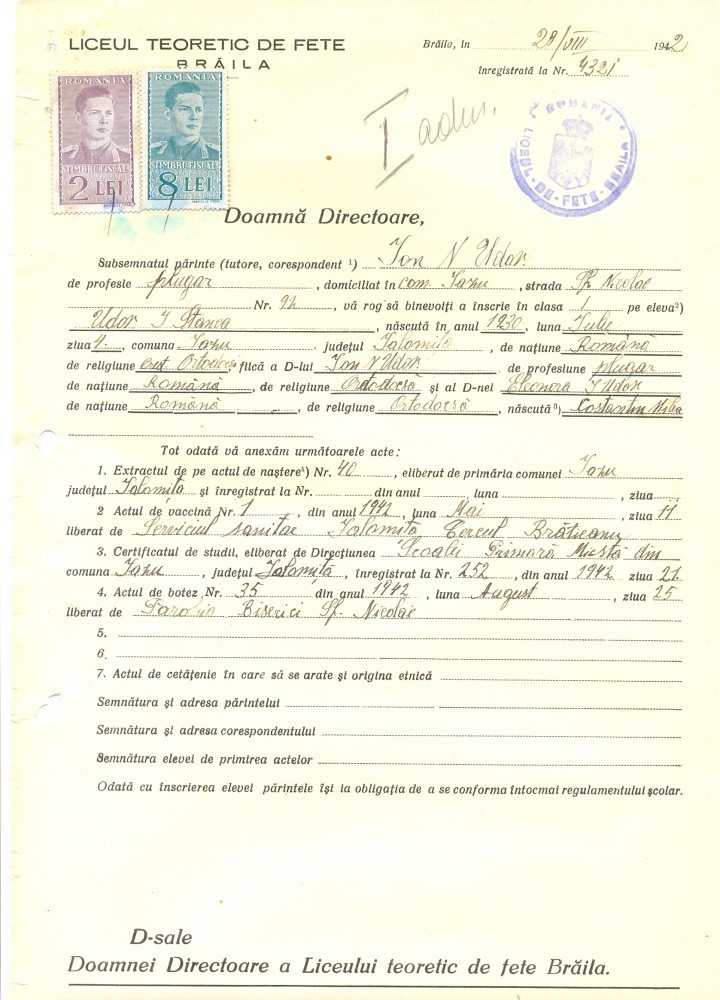 LICEUL TEORETIC DE FETE
BRĂILA
Brăila, în 29/VIII 1942
înregistrată la Nr. 4321
ROMANIA
TIMBRU FISCAL
2 LEI
ROMANIA
TIMBRU FISCAL
8 LEI
I
ROMANIA
LICEUL-DE-FETE-BRAILA
Doamnă Directoare,
Subsemnatul părinte (tutore, corespondent ¹) Ion N Udor
de profesie plugar, domiciliat în com. Iazu, strada Sf. Nicolae
Nr. 92, vă rog să binevolți a înscrie în clasa I pe eleva²)
Udor I Stanca, născută în anul 1930, luna Iulie
ziua 4, comuna Iazu județul Ialomița, de națiune Română
de religiune creșt. Ortodocsi fiică a D-lui Ion N Udor de profesiune plugar
de națiune Română, de religiune Ortodocsă și al D-nei Eleonora I Udor
de națiune Română, de religiune Ortodocsă, născută ³) Costantin Milea
Tot odată vă anexăm următoarele acte:
1. Extractul de pe actul de naștere⁴) Nr. 40, eliberat de primăria comunei Iazu
județul Ialomița și înregistrat la Nr. din anul, luna, ziua
2 Actul de vaccină Nr. 1, din anul 1942, luna Mai, ziua 11
liberat de Serviciul sanitar Ialomița Cercul Brăteanu
3. Certificatul de studii, eliberat de Direcțiunea Școalei Primară Micstă din
comuna Iazu, județul Ialomiță, înregistrat la Nr. 252, din anul 1942 ziua 21.
4. Actul de botez Nr. 35 din anul 1942, luna August, ziua 25
liberat de Parohia Biserici Sf. Nicolae
5.
6.
7. Actul de cetățenie în care să se arate și origina etnică
Semnătura și adresa părintelui
Semnătura și adresa corespondentului
Semnătura elevei de primirea actelor
Odată cu înscrierea elevei părintele își ia obligația de a se conforma întocmai regulamentului școlar.
D-sale
Doamnei Directoare a Liceului teoretic de fete Brăila.